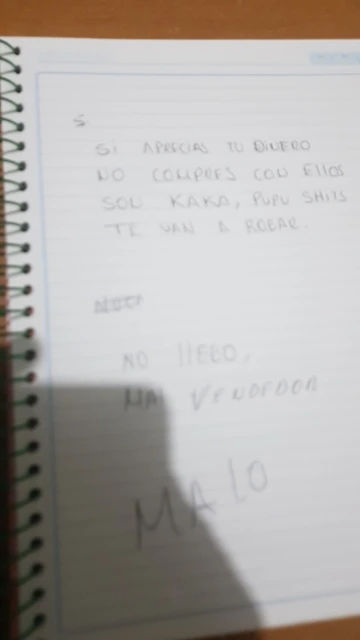 S
SI APRECIAS TU DINERO
NO COMPRES CON EllOS
SON KAKA, PUPU SHITS
TE VAN A ROBAR.
NO llEGO,
MAL VENDEDOR
MALO